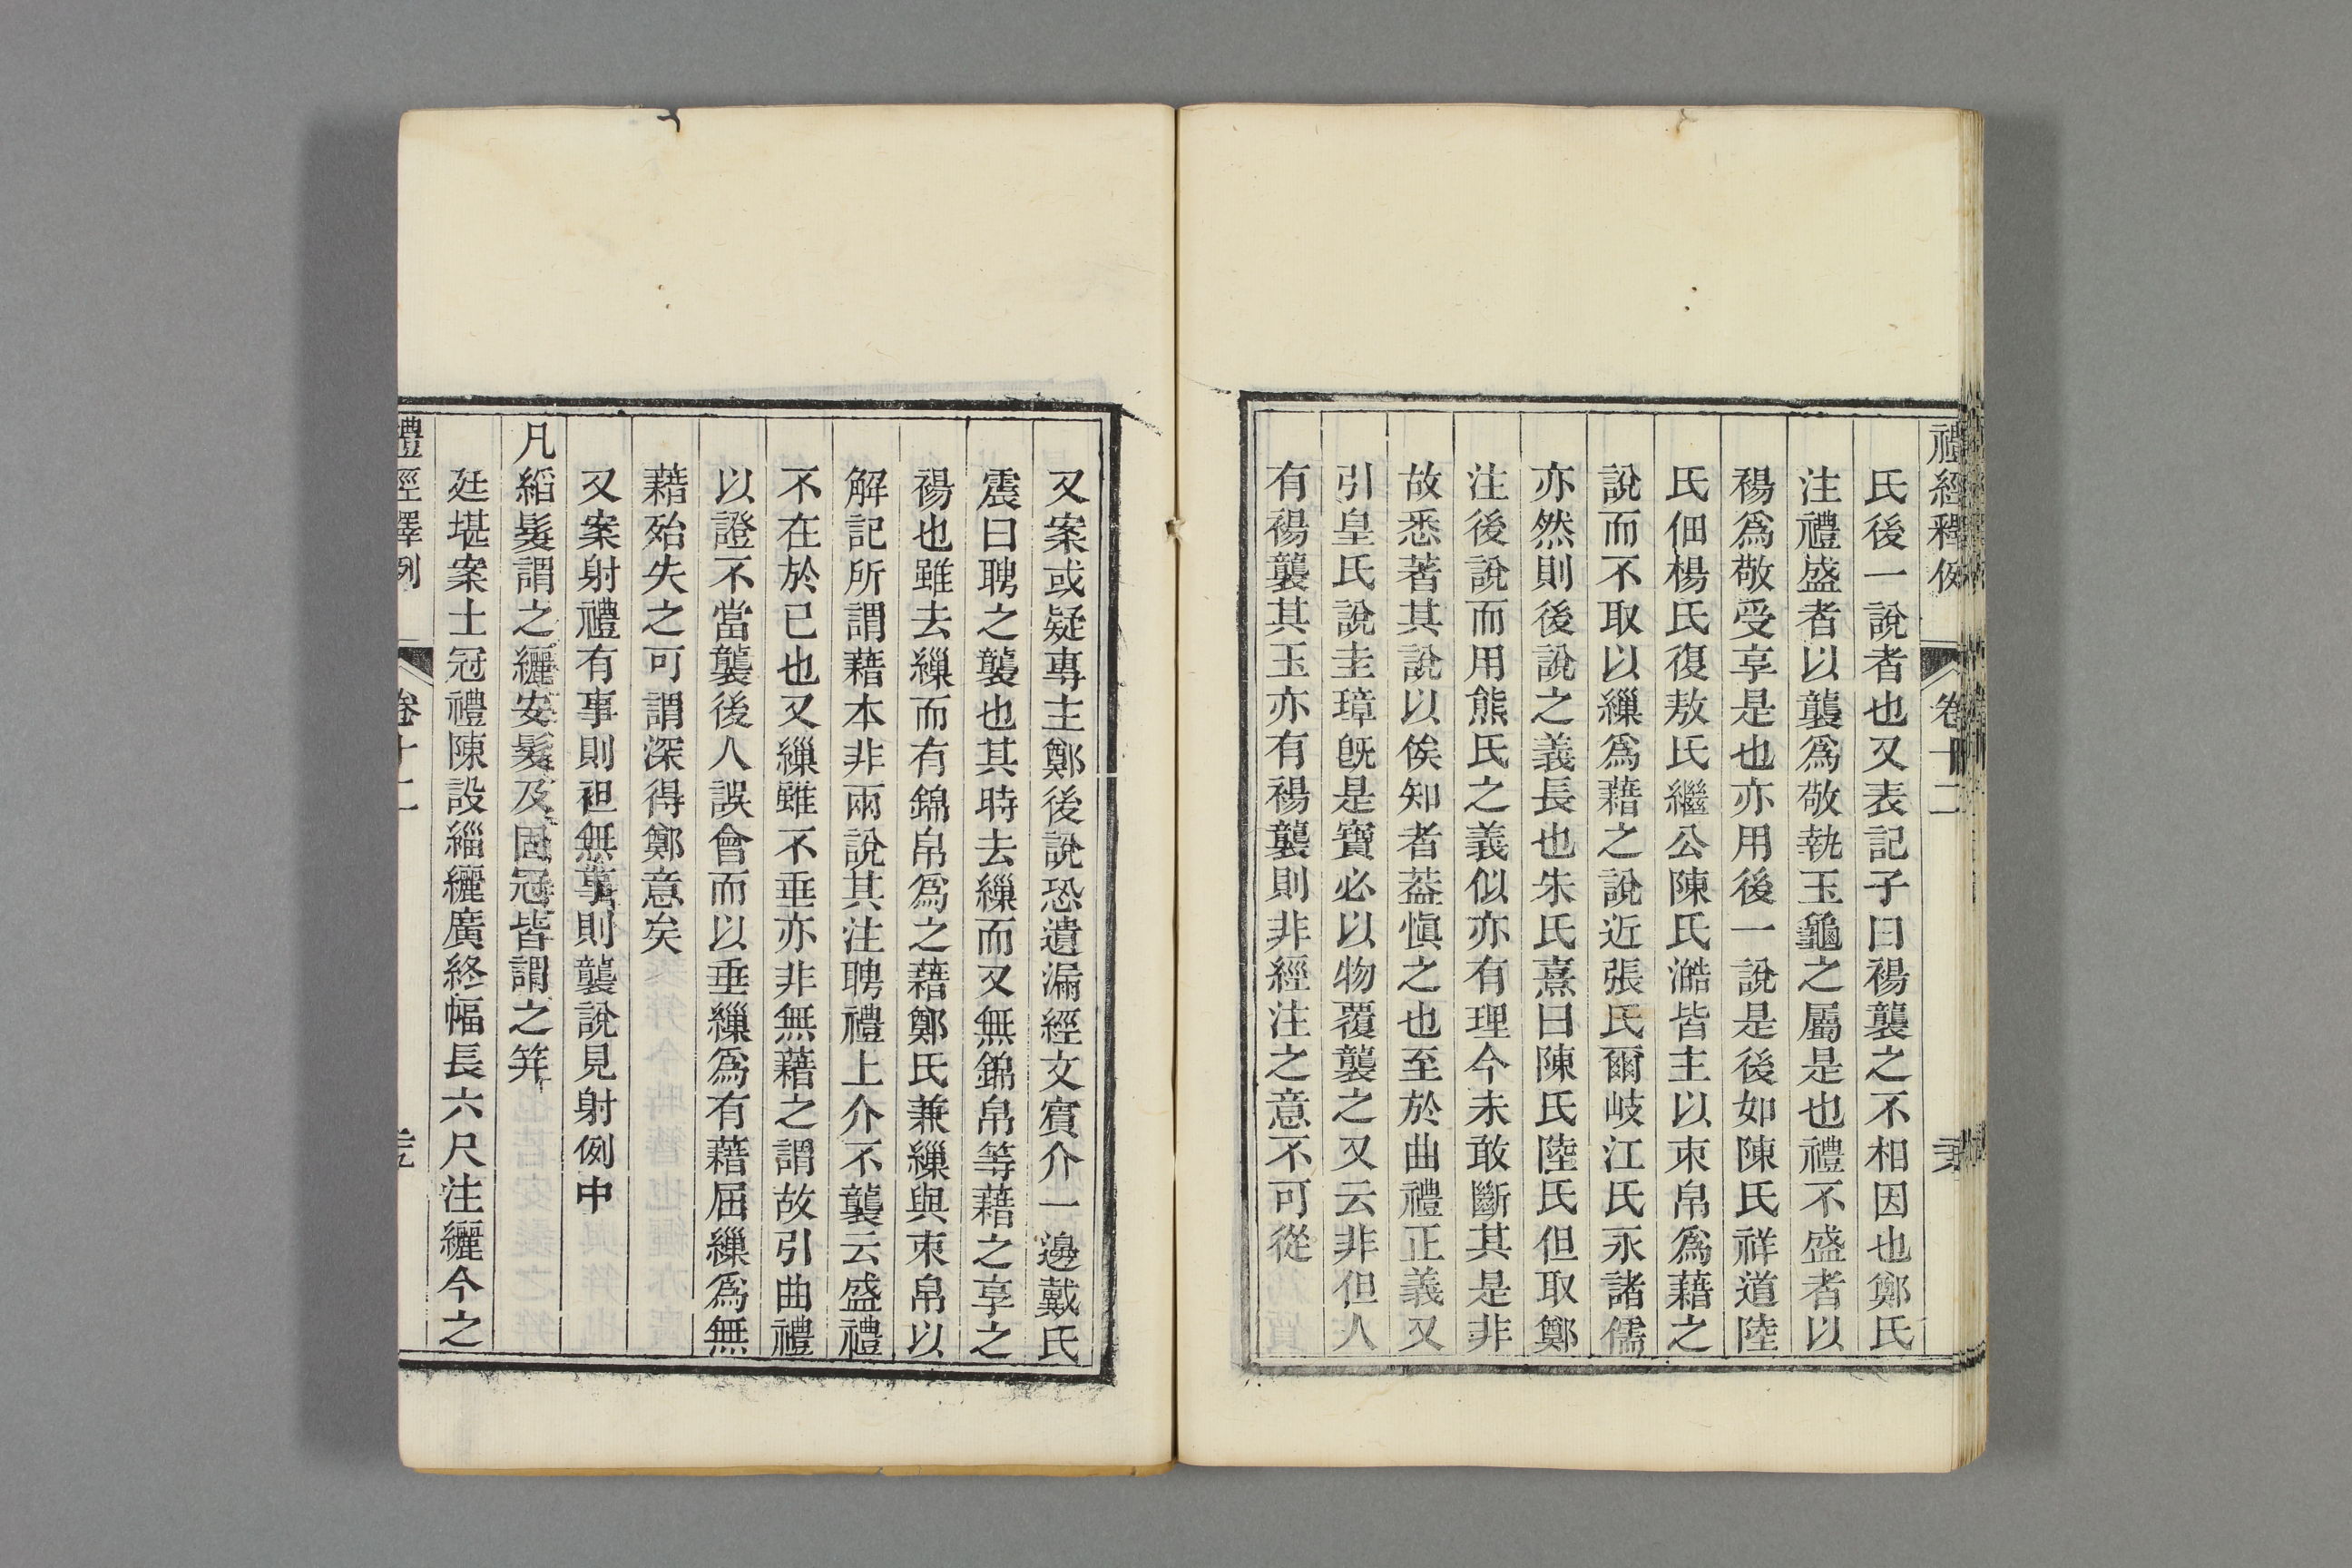 禮經釋例 卷十二
氏後一說者也又表記子曰裼襲之不相因也鄭氏
注禮盛者以襲爲敬執玉龜之屬是也禮不盛者以
裼爲敬受享是也亦用後一說是後如陳氏祥道陸
氏佃楊氏復敖氏繼公陳氏澔皆主以束帛爲藉之
說而不取以繅爲藉之說近張氏爾岐江氏永諸儒
亦然則後說之義長也朱氏熹曰陳氏陸氏但取鄭
注後說而用熊氏之義似亦有理今未敢斷其是非
故悉著其說以俟知者葢愼之也至於曲禮正義又
引皇氏說圭璋旣是寶必以物覆襲之又云非但人
有裼襲其玉亦有裼襲則非經注之意不可從
又案或疑專主鄭後說恐遺漏經文賓介一邊戴氏
震曰聘之襲也其時去繅而又無錦帛等藉之享之
裼也雖去繅而有錦帛爲之藉鄭氏兼繅與束帛以
解記所謂藉本非兩說其注聘禮上介不襲云盛禮
不在於已也又繅雖不垂亦非無藉之謂故引曲禮
以證不當襲後人誤會而以垂繅爲有藉屈繅爲無
藉殆失之可謂深得鄭意矣
又案射禮有事則袒無事則襲說見射例中
凡縚髮謂之纚安髮及固冠皆謂之笄
廷堪案士冠禮陳設緇纚廣終幅長六尺注纚今之
禮經釋例 卷十二